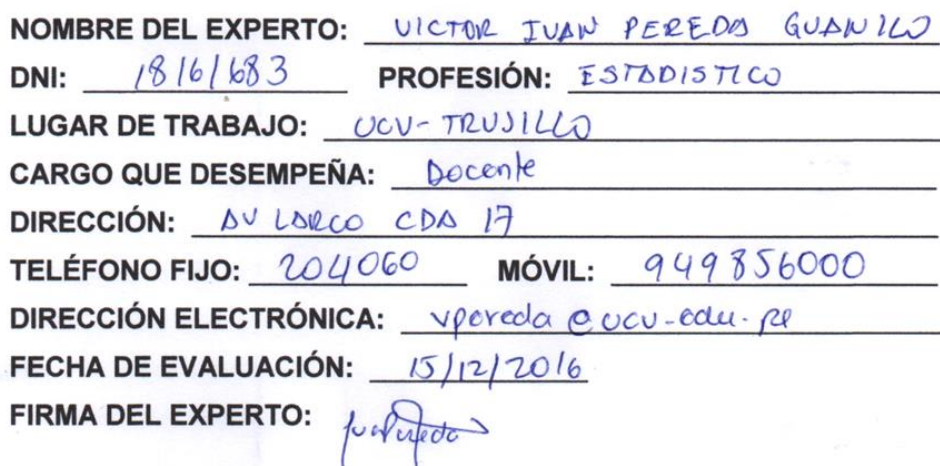 NOMBRE DEL EXPERTO: VICTOR IVAN PEREDA GUANILO
DNI: 18161683 PROFESIÓN: ESTADISTICO
LUGAR DE TRABAJO: UCV-TRUJILLO
CARGO QUE DESEMPEÑA: Docente
DIRECCIÓN: AV LARCO CDA 17
TELÉFONO FIJO: 204060 MÓVIL: 949856000
DIRECCIÓN ELECTRÓNICA: vpereda@ucv.edu.pe
FECHA DE EVALUACIÓN: 15/12/2016
FIRMA DEL EXPERTO: